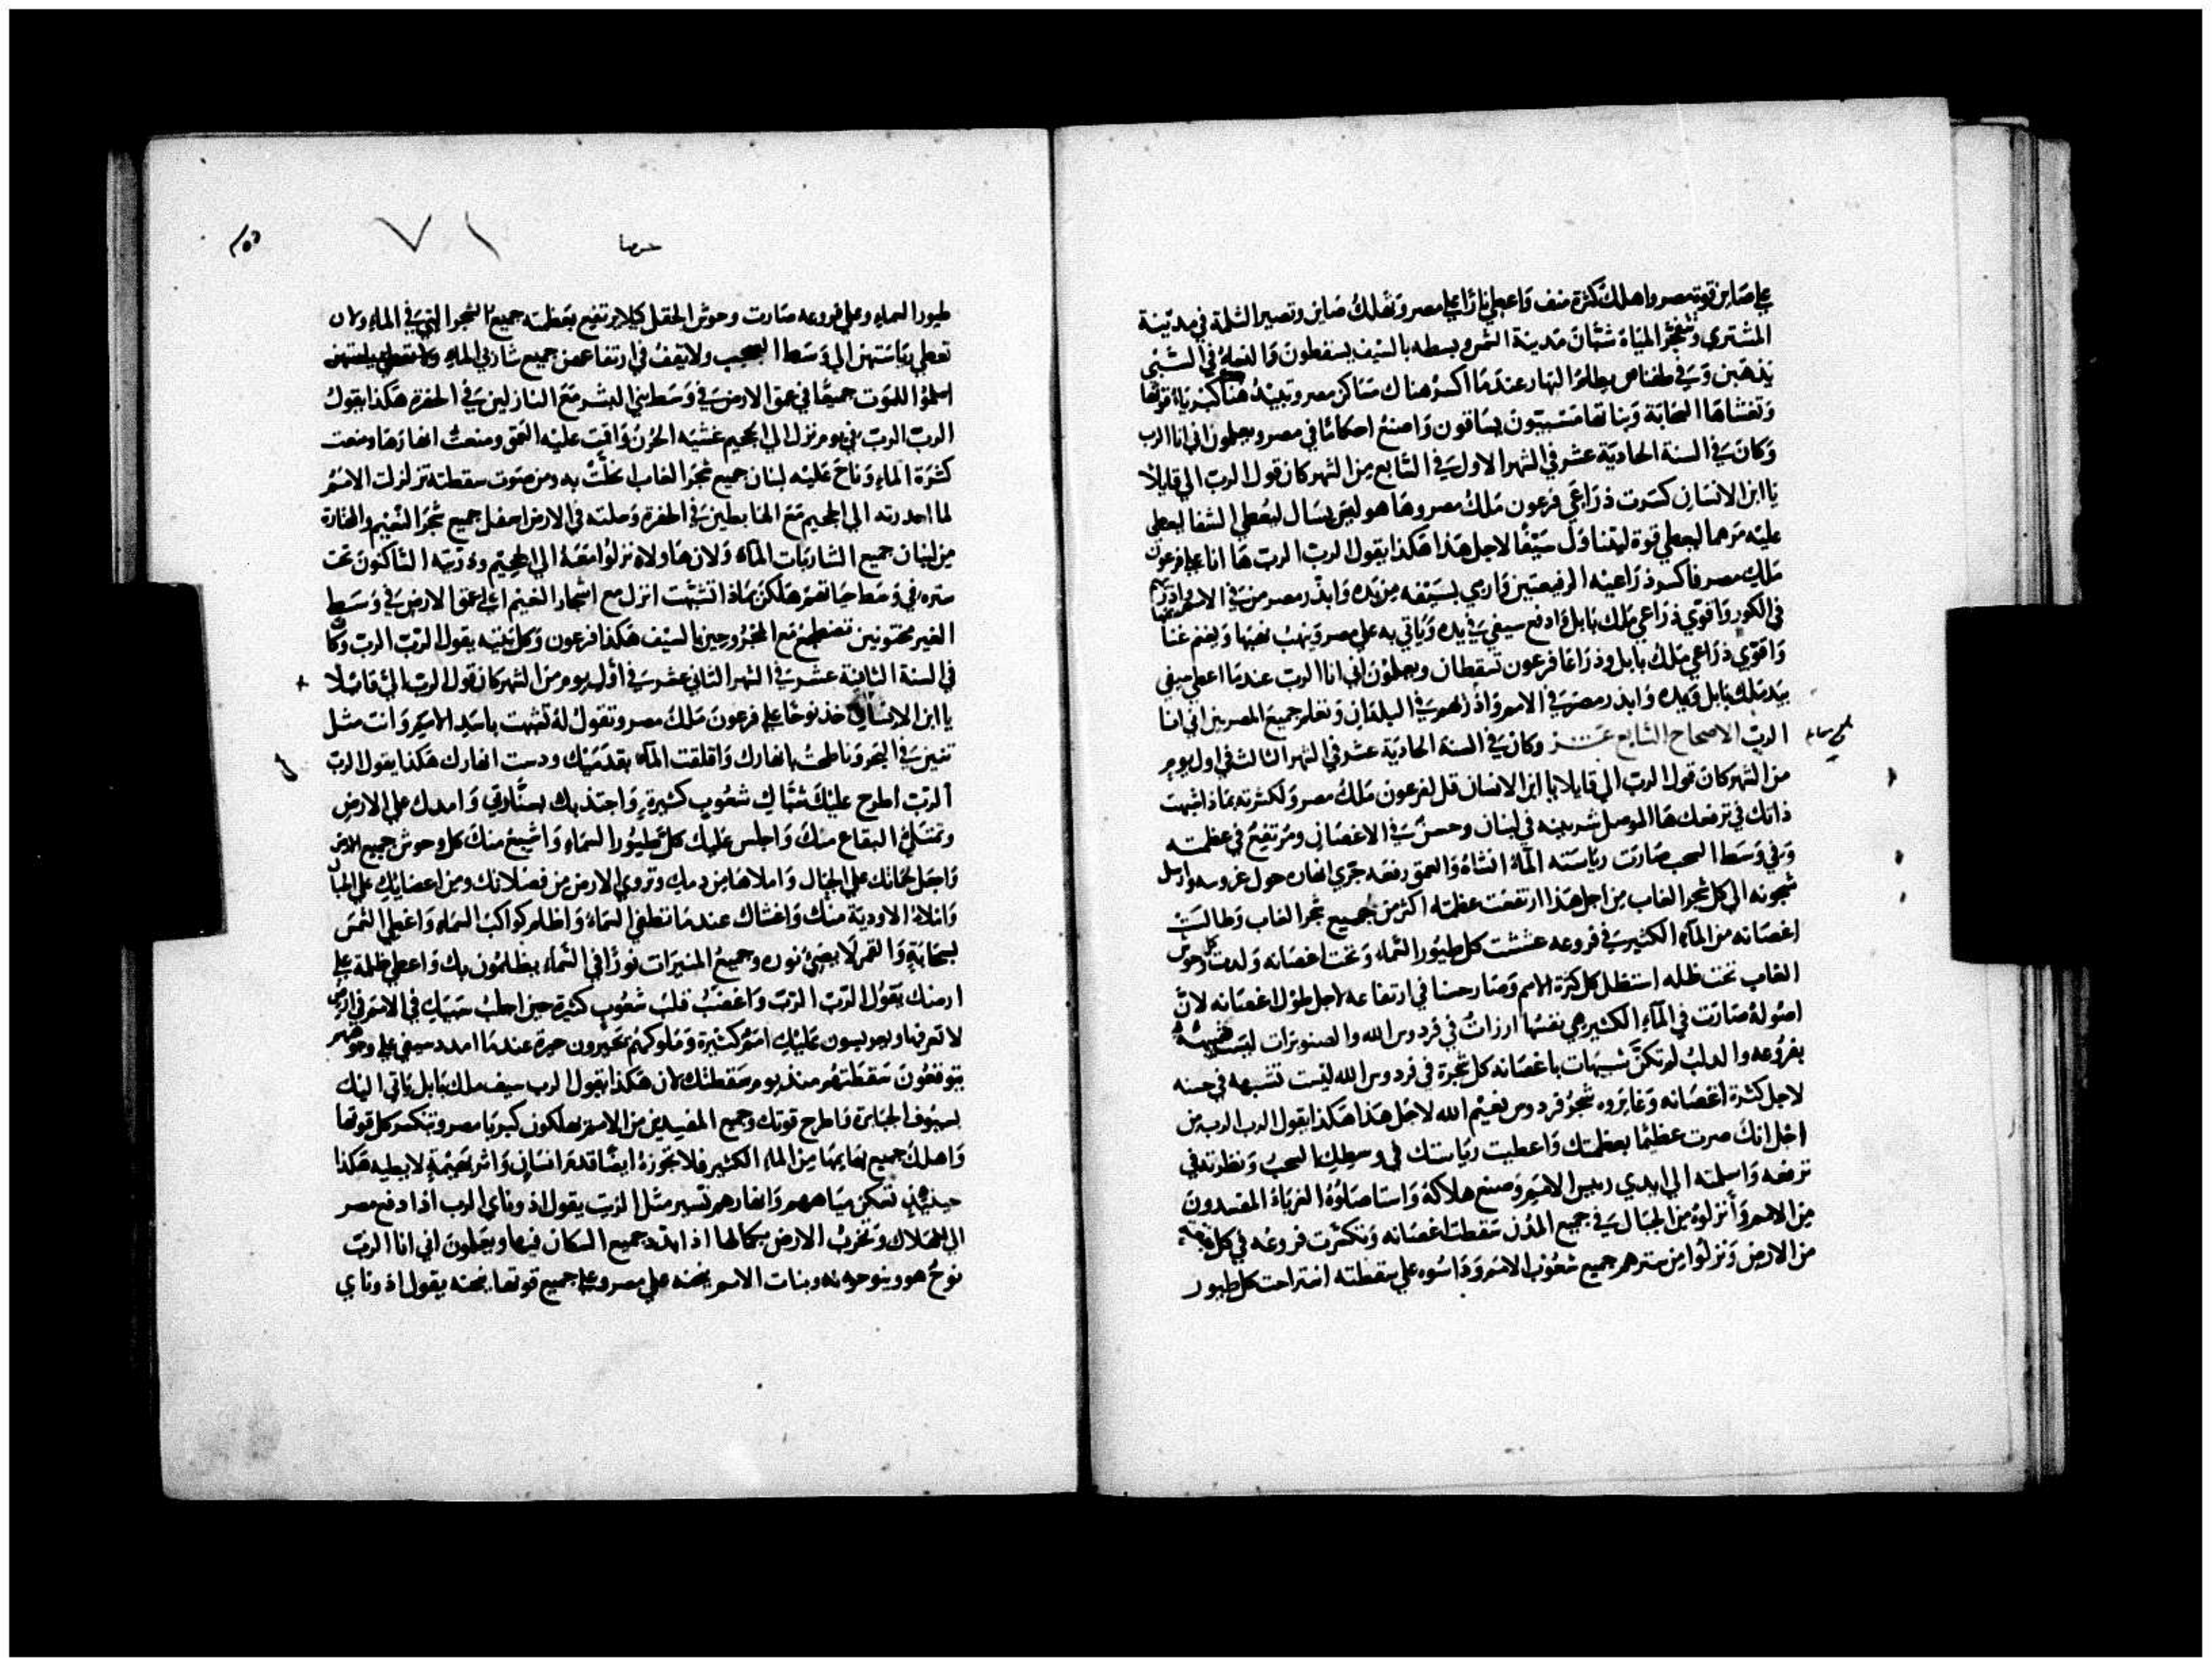 علي صاين قوة مصر واهلك كثرة منف واعطي نارًا علي مصر وتهلك صاين وتصير الثلمة في مدينة
المشتري وتنفجر المياة شبان مدينة الشمس وبسطه بالسيف يسقطون والنساء في السبي
يذهبن وفي طفناس يظلم النهار عندما اكسر هناك مساكن مصر وتبيد هناك كبرياء قوتها
وتغشاها السحابة وبناتها مسبيون يساقون واصنع احكامًا في مصر ويعلمون اني انا الرب
وكان في السنة الحادية عشر في الشهر الاول في السابع من الشهر كان قول الرب الي قايلًا
يا ابن الانسان كسرت ذراعي فرعون ملك مصر وها هو ليس يسال ليعطي الشفا ليعطي
عليه مرهما ليعطي قوة ليتناول سيفًا لاجل هذا هكذا يقول الرب الرب ها انا علي فرعون
ملك مصر فاكسر ذراعيه الرفيعتين وارمي بسيفه من يده وابذر مصر من في الامم واذريهم
في الكور واقوي ذراعي ملك بابل وادفع سيفي في يده وياتي به علي مصر وينهب نهبها ويغنم غناها
واقوي ذراعي ملك بابل وذراعا فرعون تسقطان ويعلمون اني انا الرب عندما اعطي سيفي
بيد ملك بابل ويمده وابذر مصر في الامم واذرهم في البلدان وتعلم جميع المصريين اني انا
الرب الاصحاح السابع عشر وكان في السنة الحادية عشر في الشهر الثالث في اول يوم
من الشهر كان قول الرب الي قايلا يا ابن الانسان قل لفرعون ملك مصر ولكثرته بماذا شبهت
ذاتك في ترفعك ها الموصل شربينه في لبنان وحسن في الاغصان ومرتفع في عظمته
وفي وسط السحب صارت رياسته المآء انشاه والعمق رفعه جري انهاره حول عروسه وارسل
شجونه الي كل شجر الغاب من اجل هذا ارتفعت عظمته اكثر من جميع شجر الغاب وطالت
اغصانه من المآء الكثير في فروعه عششت كل طيور السماء وتحت اغصانه ولدت كل وحوش
الغاب تحت ظله استظل كل كثرة الامم وصار حسنا في ارتفاعه لاجل طول اغصانه لان
اصوله صارت في المآء الكثير هي نفسها ارزات في فردوس الله والصنوبرات ليست شبيهة
بفروعه والدلب لم تكن شبيهات باغصانه كل شجرة في فردوس الله ليست تشبهه في حسنه
لاجل كثرة اغصانه وغايروه شجر فردوس نعيم الله لاجل هذا هكذا يقول الرب الرب من
اجل انك صرت عظيمًا بعظمتك واعطيت رياستك في وسط السحب ونظرته في
ترفعه واسلمته الي ايدي رييس الامم وصنع هلاكه واستاصلوه الغرباء المفسدون
من الامم وانزلوه من الجبال في جميع المدن سقطت اغصانه وتكسرت فروعه في كل
من الارض ونزلوا من سترهم جميع شعوب الامم وداسوه علي سقطته استراحت كل طيور
طيور السماء وعلي فروعه صارت وحوش الحقل كيلا يرتفع بعظمته جميع الشجر التي في الماء ولان
تعطي رياستهن الي وسط السحب ولا يقف في ارتفاعهن جميع شاربي الماء
اسلموا للموت جميعًا في عمق الارض في وسط بني البشر مع النازلين في الحفرة هكذا يقول
الرب الرب في يوم نزل الي الجحيم غشيه الحزن واقيت عليه العمق ومنعت انهارها ومنعت
كثرة الماء وناح عليه لبنان جميع شجر الغاب انحلت به ومن صوت سقطته تزلزلت الامم
لما احدرته الي الجحيم مع الهابطين في الحفرة وعملته في الارض اسفل جميع شجر النعيم والمختارة
من لبنان جميع الشاربات المآء ولان هاولاء نزلوا معه الي الجحيم وذريته الساكنون تحت
ستره في وسط حياتهم هلكن بماذا تشبهت انزل مع اشجار النعيم الي عمق الارض في وسط
الغير مختونين تضطجع مع المجروحين بالسيف هكذا فرعون وكل بنيته يقول الرب الرب وكان
في السنة الثانية عشر في الشهر الثاني عشر في اول يوم من الشهر كان قول الرب الي قايلا
يا ابن الانسان خذ نوحًا علي فرعون ملك مصر وتقول له تشبهت باسد الامم وانت مثل
تنين في البحر وناطحت بانهارك واقلقت المآء بقدميك ودست انهارك هكذا يقول الرب
الرب اطرح عليك شباك شعوب كثيرة واجتذبك بسنارتي وامدك علي الارض
وتمتلئ البقاع منك واجلس عليك كل طيور السماء واشبع منك كل وحوش جميع الارض
واجعل لحمانك علي الجبال واملاها من دمك وتروي الارض من فضلاتك ومن اعضايك علي الجبال
واملاء الاودية منك واغشاك عندما تطفي السماء واظلم كواكب السماء واغطي الشمس
بسحابة والقمر لا يضئ نوره وجميع المنيرات نورًا في السماء يظلمون بك واعطي ظلمة علي
ارضك يقول الرب الرب واغضب قلب شعوب كثيرة حين اجلب سبيك في الامم في ارض
لا تعرفها ويعبسون عليك امم كثيرة وملوكهم يتحيرون حيرة عندما امدد سيفي علي وجوههم
يتوقعون سقطتهم منذ يوم سقطتك لان هكذا يقول الرب سيف ملك بابل ياتي اليك
بسيوف الجبابرة فاطرح قوتك وجميع المفسدين من الامم يهلكون كبريا مصر وتنكسر كل قوتها
واهلك جميع بهايمها من الماء الكثير فلا تجوزه ايضًا قدم انسان واثر بهيمة لا يطيه هكذا
حينيذ تسكن مياههم وانهارهم تسير مثل الزيت يقول اذوناي الرب اذا دفع مصر
الي الهلاك وتخرب الارض بكمالها اذا ابدد جميع السكان فيها ويعلمون اني انا الرب
نوح هو وينوحونه وبنات الامم ينحنه علي مصر وعلي جميع قوتها ينحنه يقول اذوناي